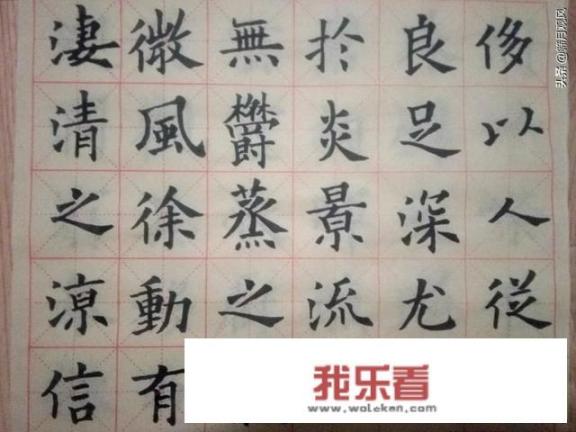 侈以人從
良足深尤
於炎景流
無鬱蒸之
微風徐動有
淒清之涼信
头条
我乐看
www.woleken.com